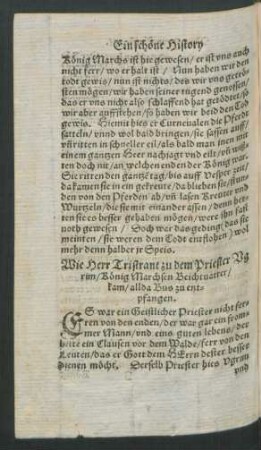 Ein schöne History
König Marchs ist hie gewesen / er ist vns auch
nicht ferr / wo er halt ist / Nun haben wir den
todt gewis / nun ist nichts / des wir vns getrö-
sten mögen / wir haben seiner tugend genossen /
das er vns nicht also schlaffend hat getödtet / so
wir aber auffstehen / so haben wir beid den Tod
gewis. Hiemit hies er Curnenalen die Pferdt
satteln / vnnd wol bald bringen / sie sassen auff /
vñ ritten in schneller eil / als bald man inen mit
einem gantzen Heer nachjagt vnd eilt / eñ wiß-
ten doch nit / an welchen enden der König war.
Sie ritten den gantzē tag / bis auff Vesper zeit /
da kamen sie in ein gekreute / da blieben sie / stunden
den von den Pferden ab / vñ lasen Kreuter vnd
Wurtzeln / die sie mit einander assen / denn het-
ten sie es besser gehaben mögen / were ihn fast
noth gewesen / Doch war das geding / das sie
meinten / sie weren dem Todt entflohen / wol
mehr denn halber jr Speis.
Wie Herr Tristrant zu dem Priester Vg
rim / König Marchsen Beichtvatter /
kam / allda Bus zu ent-
pfangen.
ES war ein Geistlicher Priester nicht fer-
ren von den enden / der war gar ein from-
mer Mann / vnd eins guten lebens / der
hete ein Clausen vor dem Walde / ferr von den
Leuten / das er Gott dem HErrn dester besser
dienen möcht. Derselb Priester hies Vgrim
vnd